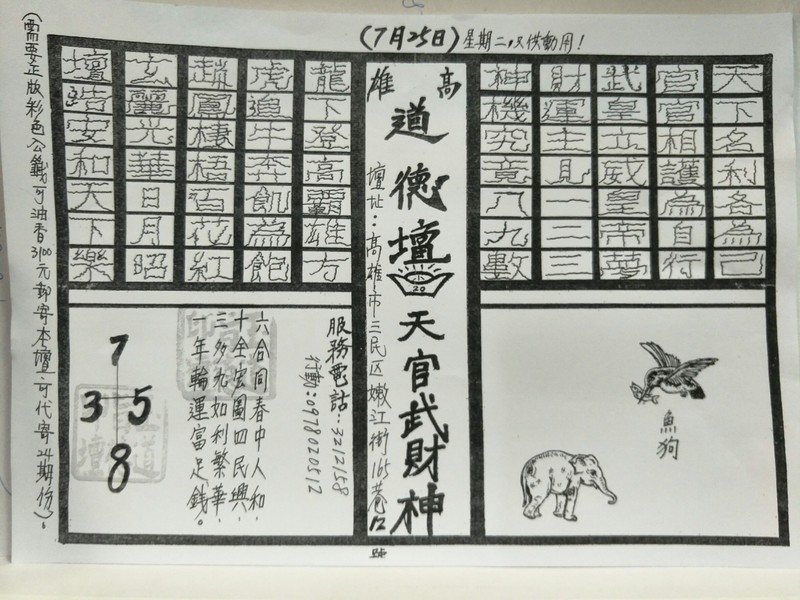 (7月25日)星期二,只供動用!
天下名利各為己
宮官相護為自行
武皇立威皇帝夢
財運主見一二三
神機究竟八九數
高雄
道德壇天官武財神
20
壇址:高雄市三民區嫩江街165巷12號
龍下登高霸雄方
虎追牛奔飢為飽
趙鳳棲梧百花紅
玄靈光華日月昭
壇造安和天下樂
魚狗
服務電話:3212158
行動:0978020512
六合同春中人和,
十全宏圖四民興,
三多九如利繁華,
一年輪運富足錢。
7
3 5
8
(需要正版彩色公籤可油香3100元郵寄本壇可代寄24期份)。